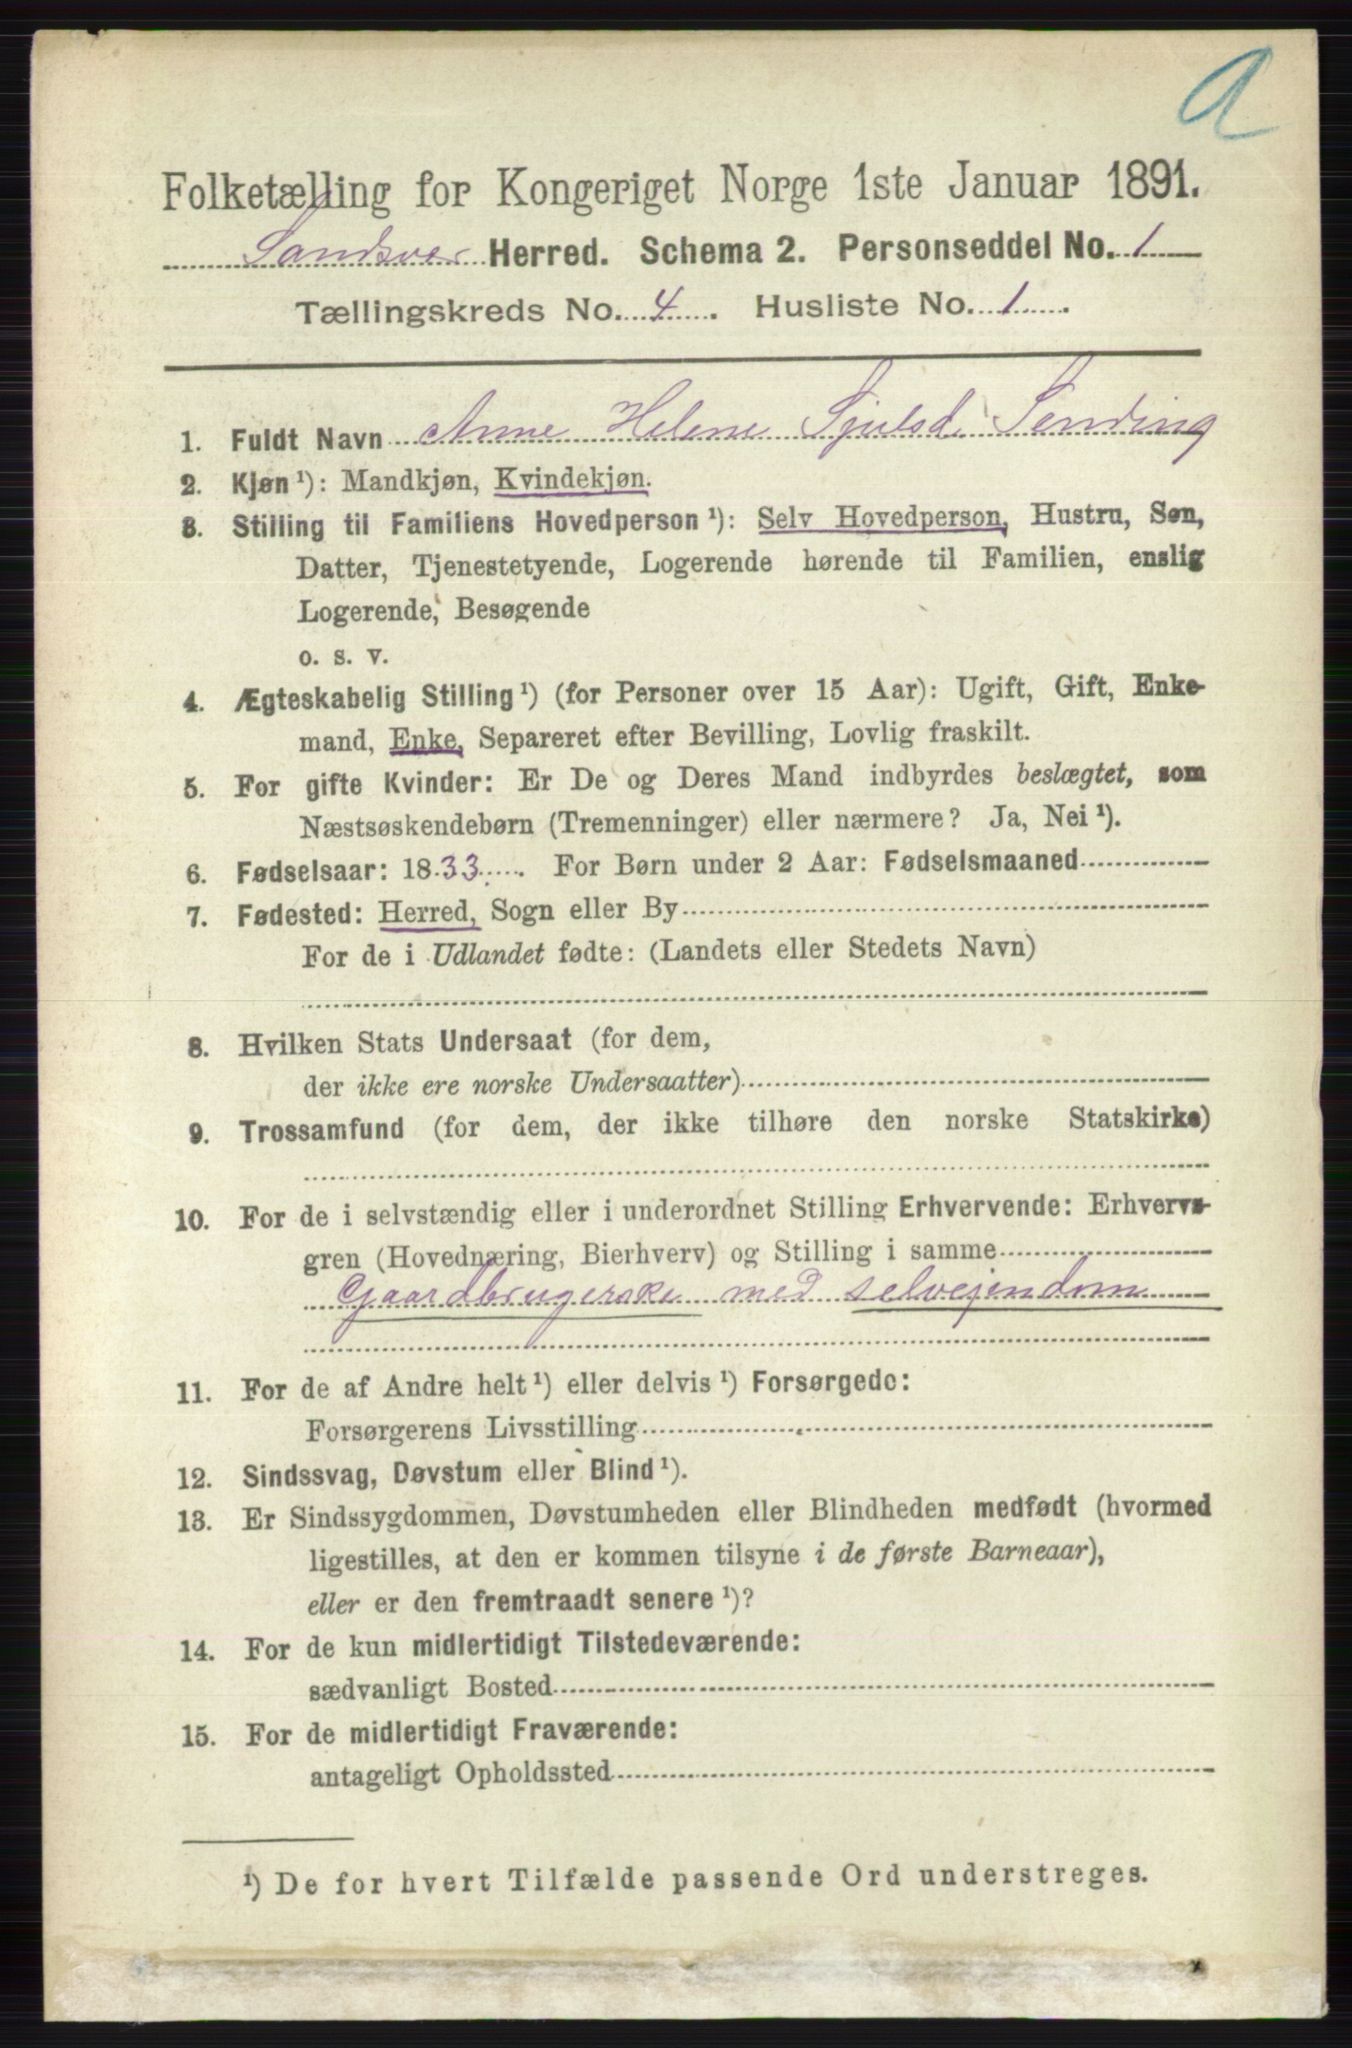 a
Folketælling for Kongeriget Norge 1ste Januar 1891.
Sandsver Herred. Schema 2. Personseddel No. 1
Tællingskreds No. 4. Husliste No. 1.
1. Fuldt Navn Anne Helene Sjulsd. Sending
2. Kjøn ¹): Mandkjøn, Kvindekjøn.
3. Stilling til Familiens Hovedperson ¹): Selv Hovedperson, Hustru, Søn,
Datter, Tjenestetyende, Logerende hørende til Familien, enslig
Logerende, Besøgende
o. s. v.
4. Ægteskabelig Stilling ¹) (for Personer over 15 Aar): Ugift, Gift, Enke-
mand, Enke, Separeret efter Bevilling, Lovlig fraskilt.
5. For gifte Kvinder: Er De og Deres Mand indbyrdes beslægtet, som
Næstsøskendebørn (Tremenninger) eller nærmere? Ja, Nei ¹).
6. Fødselsaar: 1833. For Børn under 2 Aar: Fødselsmaaned
7. Fødested: Herred, Sogn eller By
For de i Udlandet fødte: (Landets eller Stedets Navn)
8. Hvilken Stats Undersaat (for dem,
der ikke ere norske Undersaatter)
9. Trossamfund (for dem, der ikke tilhøre den norske Statskirke)
10. For de i selvstændig eller i underordnet Stilling Erhvervende: Erhvervs-
gren (Hovednæring, Bierhverv) og Stilling i samme
Gaardbrugerske med selvejendom
11. For de af Andre helt ¹) eller delvis ¹) Forsørgede:
Forsørgerens Livsstilling
12. Sindssvag, Døvstum eller Blind ¹).
13. Er Sindssygdommen, Døvstumheden eller Blindheden medfødt (hvormed
ligestilles, at den er kommen tilsyne i de første Barneaar),
eller er den fremtraadt senere ¹)?
14. For de kun midlertidigt Tilstedeværende:
sædvanligt Bosted
15. For de midlertidigt Fraværende:
antageligt Opholdssted
¹) De for hvert Tilfælde passende Ord understreges.